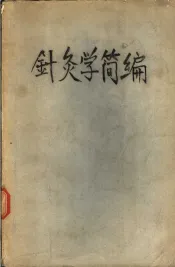 針灸学简编